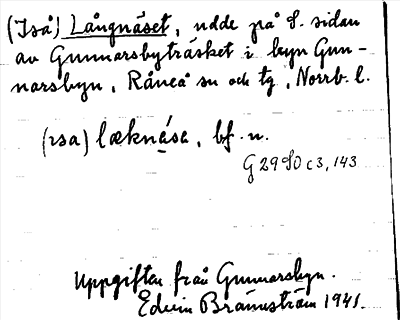 (Iså) Långnäset, udde på S. sidan
av Gunnarsbyträsket i byn Gun-
narsbyn, Råneå sn och tg, Norrb. l.
(ısa) læknása, bf. n.
G 29 SO c 3, 143
Uppgiften från Gunnarsbyn.
Edvin Brännström 1941.